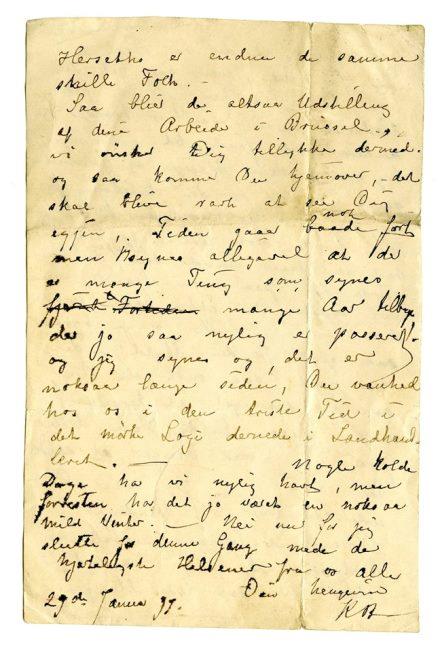 er endnu de samme
skille Folk. –
Saa blir de altsaa Udstilling
af dine Arbeide i Brüssel. –
vi ønsker Dig tillykke dermed.
og saa komme Du hjemover, – det
skal blive rart at see Dig
igjen, Tiden gaar nok baade fort
men jeg synes alligevel at de
er mange Ting som synes
mange Aar tilbage
de jo saa nylig er passeret.
og jeg synes og det er
noksaa længe siden, Du
hos os i den triste Tid i
det mørke Logi dernede i
– Nogle kolde
Dage ha vi nylig havt, men
forresten ha det jo været en noksaa
mild Vinter. – Nei nu faar jeg
slutte for denne Gang med de
hjerteligste Hilsener fra os alle
Din hengivne
29de Januar 99. KB